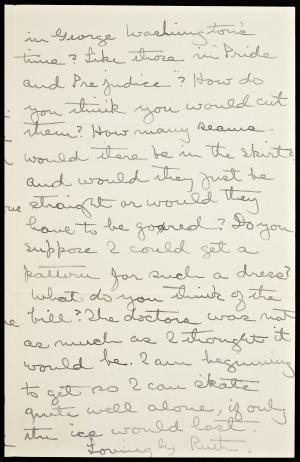 in George Washington's
time? Like those in "Pride
and Prejudice"? How do
you think you would cut
them? How many seams
would there be in the skirts
and would they just be
straight or would they
have to be gored? Do you
suppose I could get a
pattern for such a dress?
What do you think of the
bill? The doctors was not
as much as I thought it
would be. I am beginning
to get so I can skate
quite well alone, if only
the ice would last.
Lovingly Ruth.